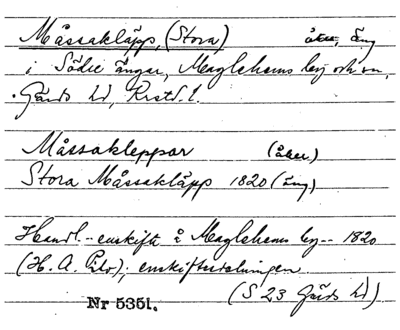 Måssakläpp, (Stora) åker, äng
i Södre ängar, Maglehems by och sn,
Gärds hd, Krstl. l.
Måssakleppar (åker)
Stora Måssakläpp 1820 (äng)
Handl.-- enskifte å Maglehems by-- 1820
(H. A. ); enskiftesdelningen
(S 23 Gärds hd)
Nr 5351.